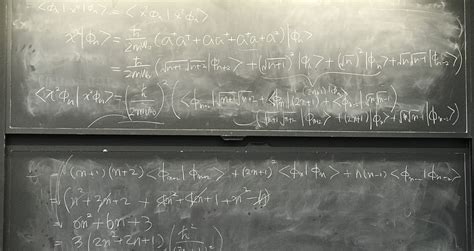 = <x²φₙ|x²φₙ>
x²|φₙ> = ħ/2mω (a⁺a⁺ + aa⁺ + a⁺a + a²)|φₙ>
= ħ/2mω (√n+1 √n+2 |φₙ₊₂> + (√n+1)²|φₙ> + (√n)²|φₙ> + √n √n-1 |φₙ₋₂>)
<x²φₙ|x²φₙ> = (ħ/2mω)² (<φₙ₊₂|√n+1 √n+2 + <φₙ|(2n+1) + <φₙ₋₂|√n √n-1)
(√n+1 √n+2 |φₙ₊₂> + (2n+1)|φₙ> + √n √n-1 |φₙ₋₂>)
= (n+1)(n+2)<φₙ₊₂|φₙ₊₂> + (2n+1)²<φₙ|φₙ> + n(n-1)<φₙ₋₂|φₙ₋₂>
= (n² + 3n + 2 + 4n² + 4n + 1 + n² - n)
= 6n² + 6n + 3
= 3(2n² + 2n + 1)